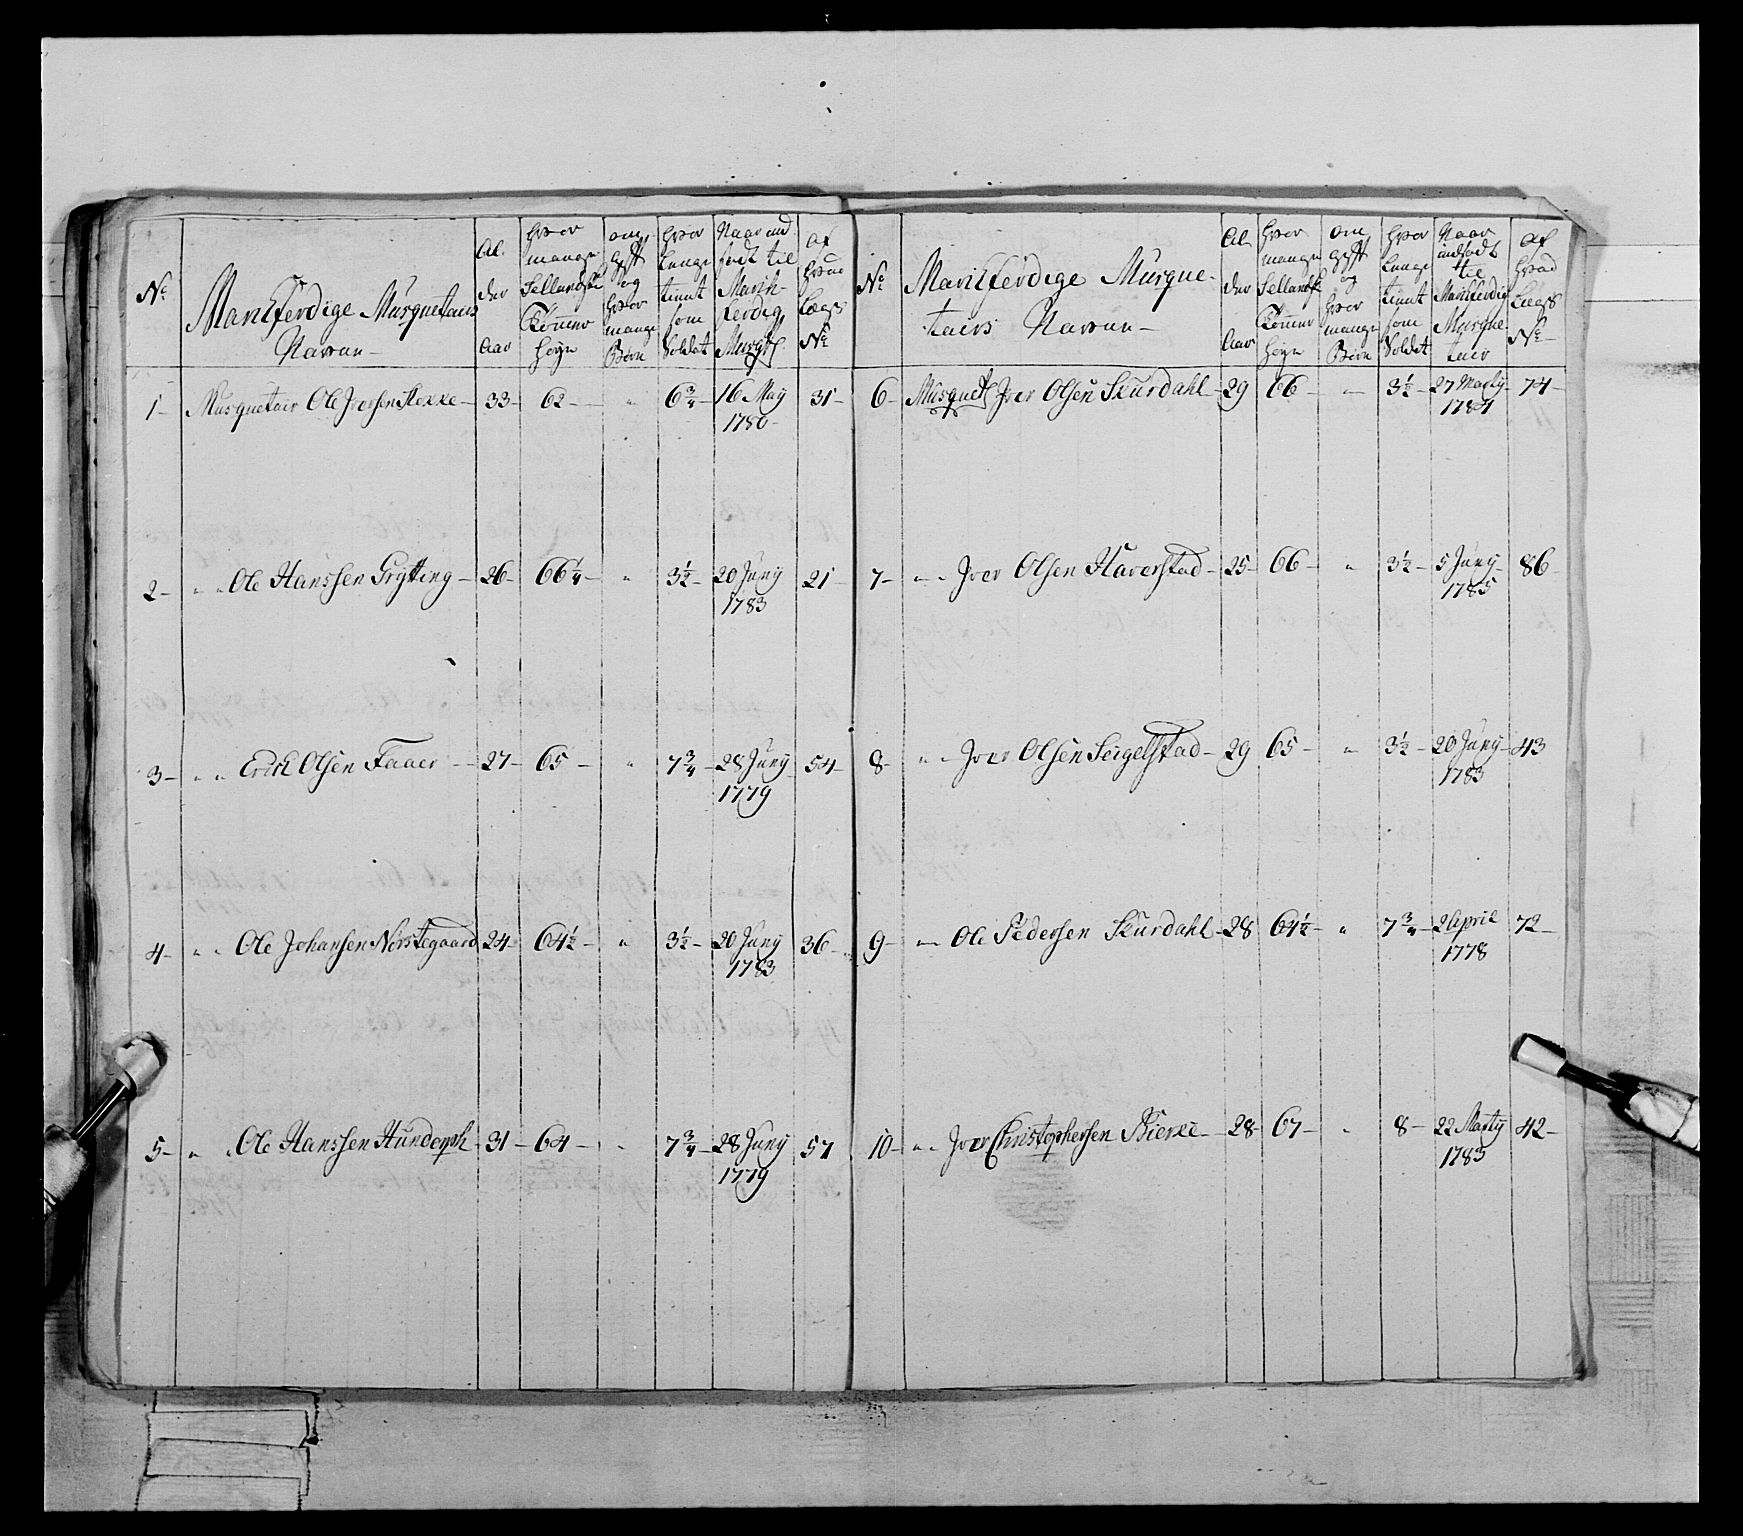 No
Marchferdige Musquetairs
Navne
Al
der
Aar
hvor
mange
Sellandske
Tommer
høye
om
gift
og
hvor
mange
Børn
hvor
Længe
tient
som
Soldat
Naar ind
født til
March-
ferdig
Musqt
af
hvad
Lægs
No
1 Musquetair Ole Iversen Kekke 33 62 " 6 3/4 16 May 1780 31
2 " " Ole Hanssen Grytting 26 66 1/4 " 3 1/2 20 Juny 1783 21
3 " " Erich Olsen Faaer 27 65 " 7 3/4 28 Juny 1779 54
4 " " Ole Johansen Nørstegaard 24 64 1/2 " 3 1/2 20 Juny 1783 36
5 " " Ole Hanssen Hundorph 31 64 " 7 3/4 28 Juny 1779 57
No
Marchferdige Musque-
tairs Navne
Al
der
Aar
hvor
mange
Sellandsk
Tommer
høye
om
gift
og
hvor
mange
Børn
hvor
Lange
tient
som
Soldat
Naar
indfødt
til
Marchferdig
Musque
tair
af
hvad
Lægs
No
6 Musquet Iver Olsen Skurdahl 29 66 " 3 1/2 27 Marty 1784 74
7 " " Iver Olsen Haverstad 25 66 " 3 1/2 5 Juny 1785 86
8 " " Iver Olsen Seigelstad 29 65 " 3 1/2 20 Juny 1783 43
9 " " Ole Pedersen Skurdahl 28 64 1/2 " 7 3/4 2 April 1778 72
10 " " Iver Christophersen Bierke 28 67 " 8 22 Marty 1783 42